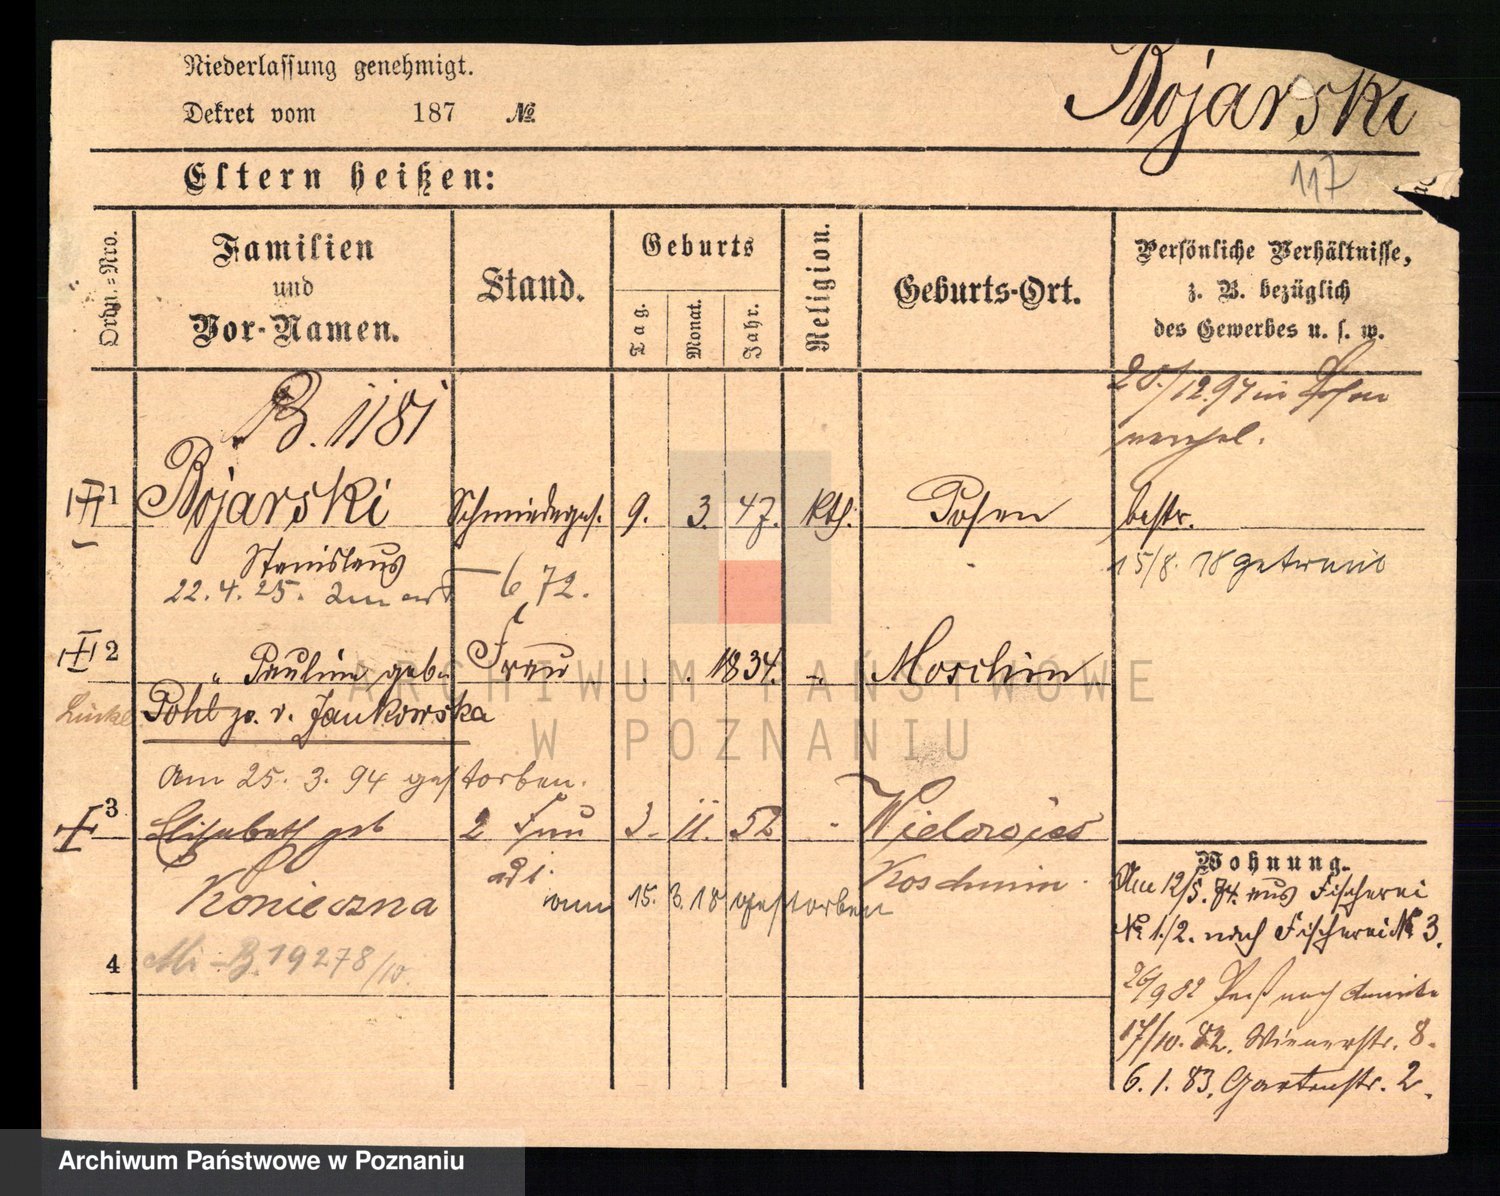 Niederlassung genehmigt.
Dekret vom 187 №
Bojarski
117
Eltern heißen:
Ordn.-Nro.
Familien
und
Vor-Namen.
Stand.
Geburts
Tag.
Monat.
Jahr.
Religion.
Geburts-Ort.
Persönliche Verhältnisse,
z. B. bezüglich
des Gewerbes u. s. w.
B. 1181
20./12.97 in Posen
1 Bojarski Schmiedeges. 9. 3. 47. Kth. Posen bestr.
Stanislaus
15/8. 78 getraut
22. 4. 25. 6 72.
2 " Pauline geb. Frau 1834. " Moschin
Pohl v. Jankowska
am 25. 3. 94 gestorben.
3 Elisabeth geb 2 Frau 3. 11. 52 "
Konieczna
Koschmin
am 15. 3. 18 gestorben
4 Mi-B. 19278/10.
Wohnung.
Am 12/5. 74. aus Fischerei
№ 1/2. nach Fischerei № 3.
26/9 82 nach
17/10. 82. Wienerstr. 8.
6. 1. 83. Gartenstr. 2.
ARCHIWUM PAŃSTWOWE
W POZNANIU
Archiwum Państwowe w Poznaniu